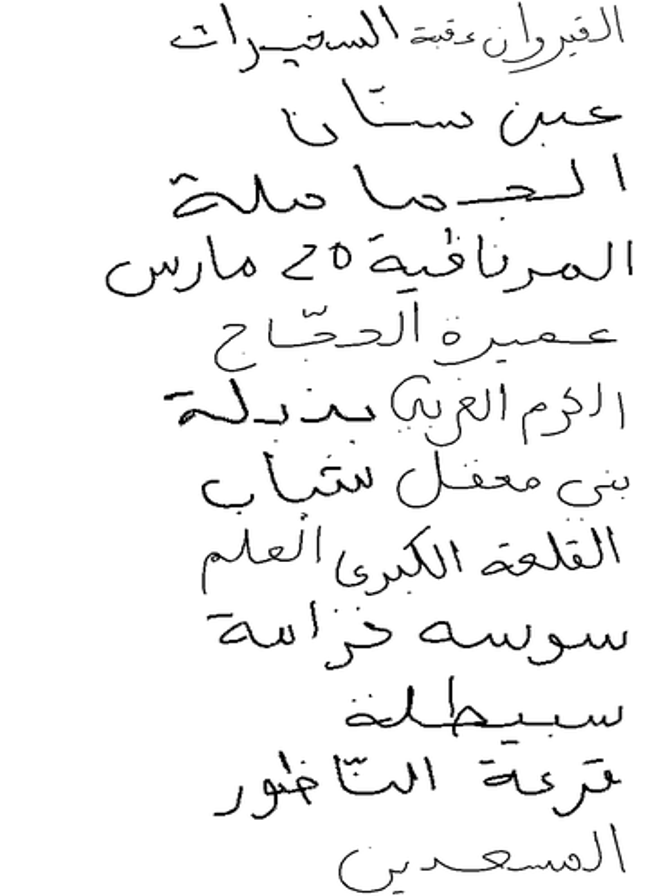 القيروان عقبة السفيرات
عين ستان
الجماملة
المرناقية 20 مارس
عميرة الحجّاج
الكرم الغربي بذبلة
بني معقل شباب
القلعة الكبرى العلم
سوسه خزامة
سبيطلة
قرعة النّاظور
المسعدين